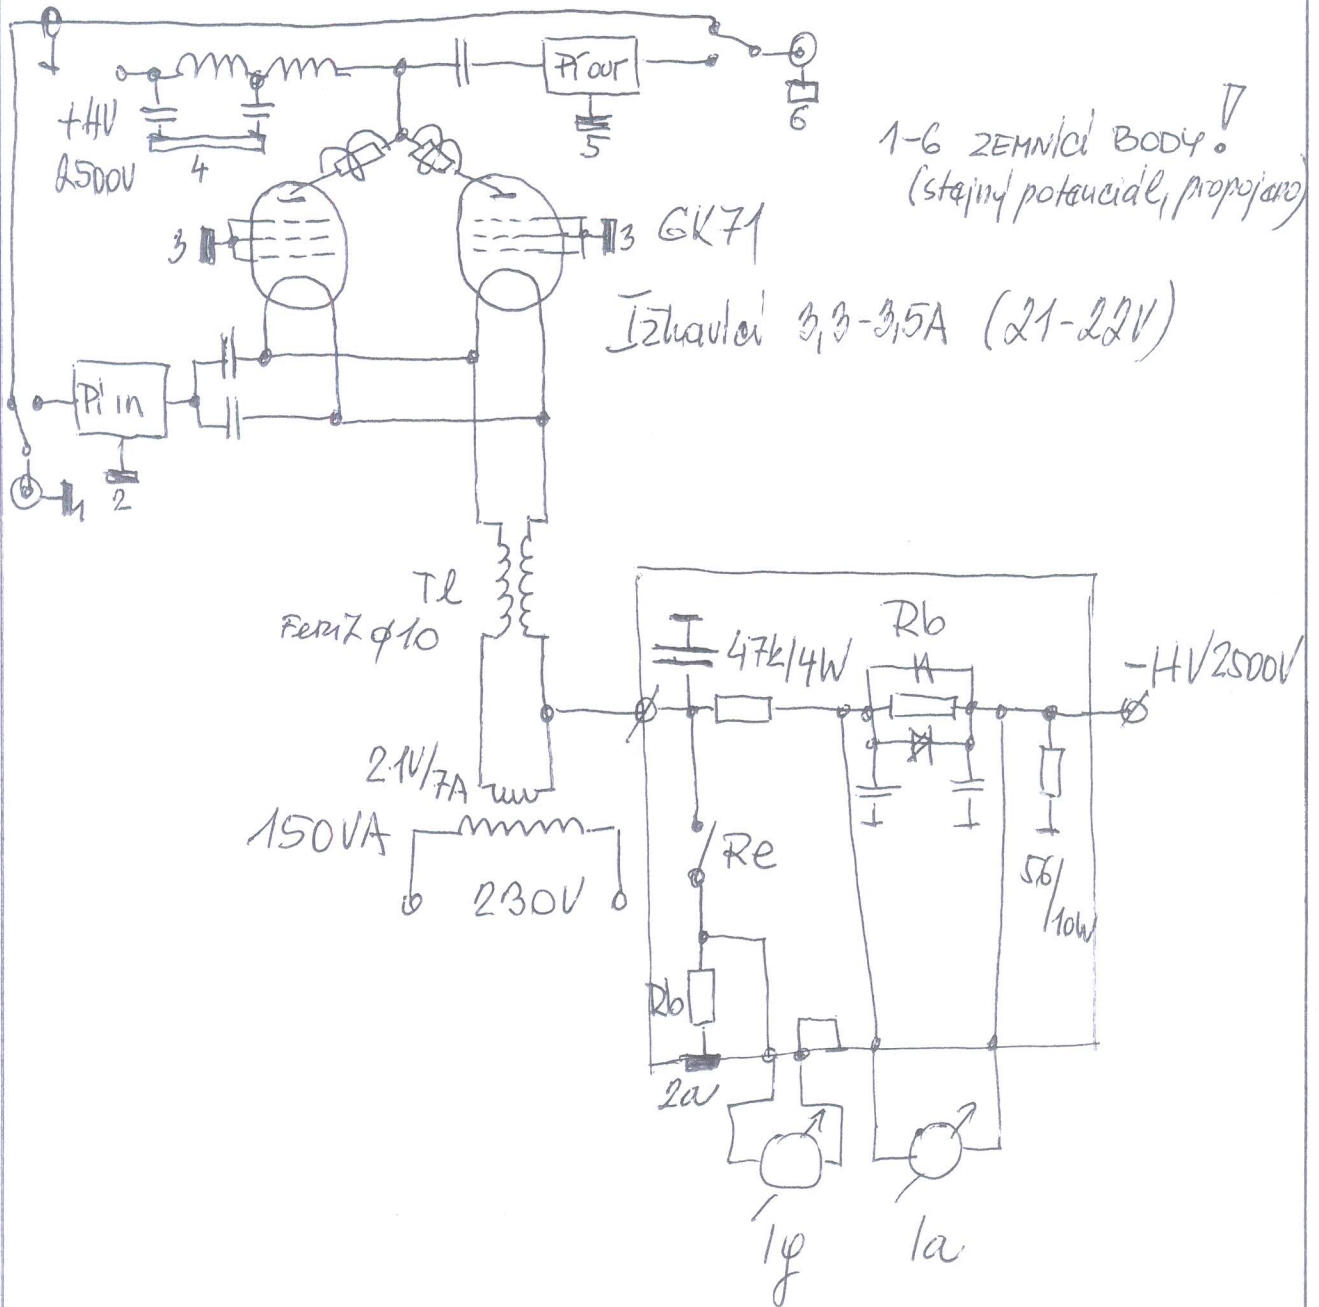 Pí out
+HV
2500V
4
5
6
1-6 ZEMNÍCÍ BODY!
(stejný potenciál, propojeno)
3
3
GK71
Ižhavící 3,3-3,5A (21-22V)
Pí in
1
2
Tl
Feriz ø10
47k/4W
Rb
-HV2500V
21V/7A
150VA
230V
Re
56/10W
Rb
2a
Ig
Ia